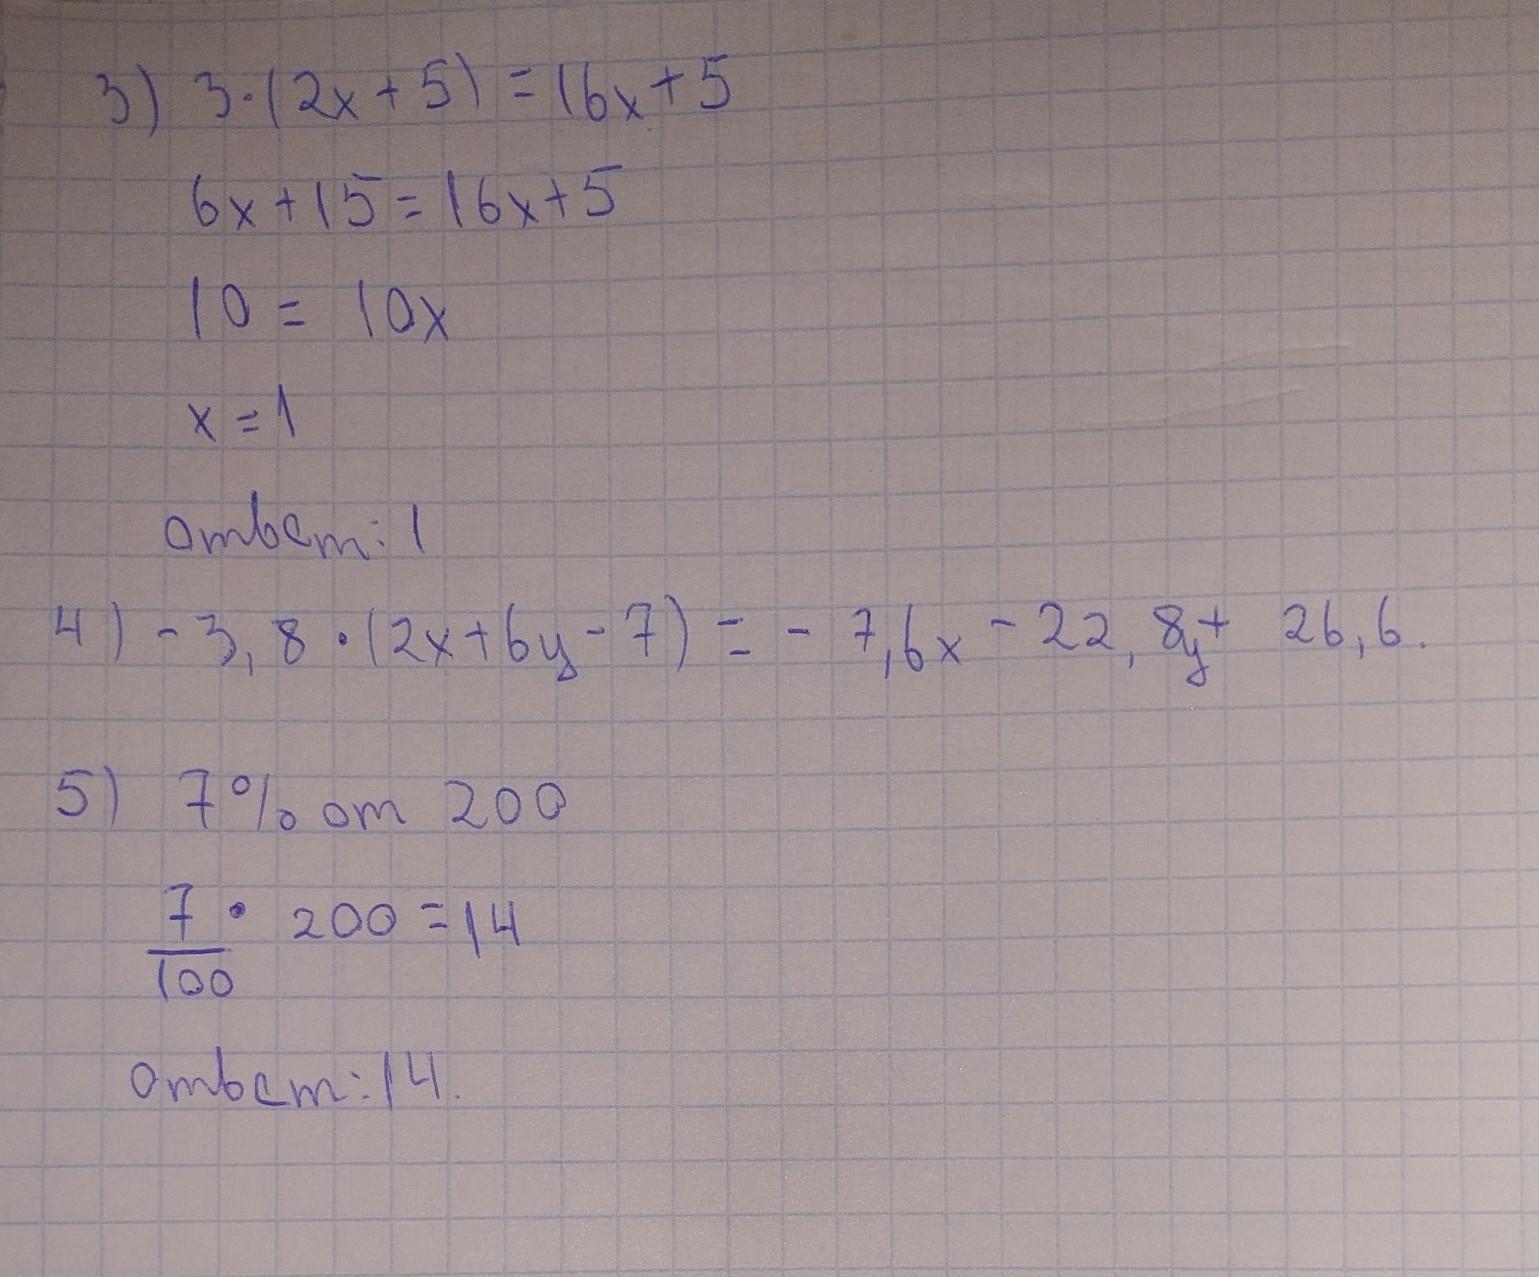 3) 3·(2x+5)=16x+5
6x+15=16x+5
10=10x
x=1
ответ:1
4) -3,8·(2x+6y-7)=-7,6x-22,8y+26,6.
5) 7% от 200
7/100·200=14
ответ:14.